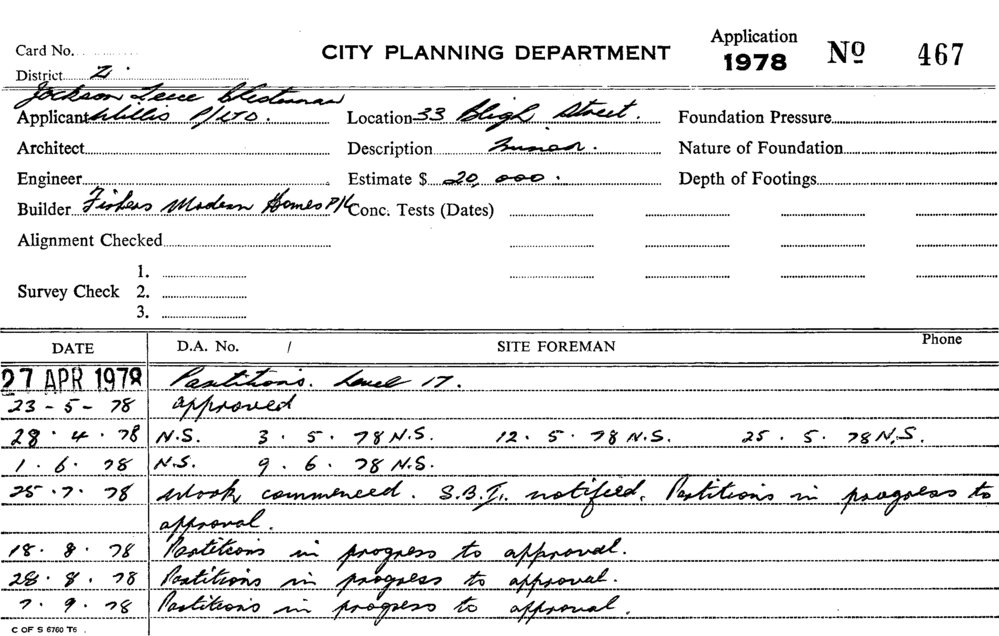 Card No.
CITY PLANNING DEPARTMENT
Application 1978 Nº 467
District 2.
Jackson Teece Chesterman
Applicant Willis P/LTD. Location 33 Bligh Street. Foundation Pressure
Architect Description Minor. Nature of Foundation
Engineer Estimate $ 20,000. Depth of Footings
Builder Fishers Modern Homes P/L Conc. Tests (Dates)
Alignment Checked
1.
Survey Check 2.
3.
DATE D.A. No. / SITE FOREMAN Phone
27 APR 1978 Partitions. Level 17.
23-5-78 approved
28.4.78 N.S. 3.5.78 N.S. 12.5.78 N.S. 25.5.78 N.S.
1.6.78 N.S. 9.6.78 N.S.
25.7.78 Work commenced. S.B.I. notified. Partitions in progress to
approval.
18.8.78 Partitions in progress to approval.
28.8.78 Partitions in progress to approval.
7.9.78 Partitions in progress to approval.
C OF S 6760 T6